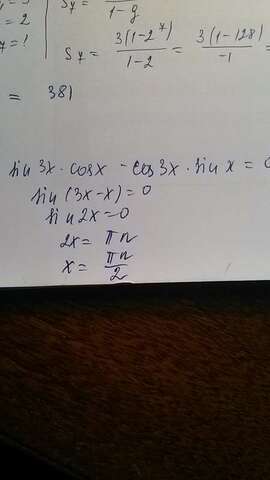 = 2
S₇ = 3(1-2⁷)/(1-2) = 3(1-128)/-1 =
= 381
sin 3x · cos x - cos 3x · sin x = 0
sin (3x-x) = 0
sin 2x = 0
2x = πn
x = πn/2